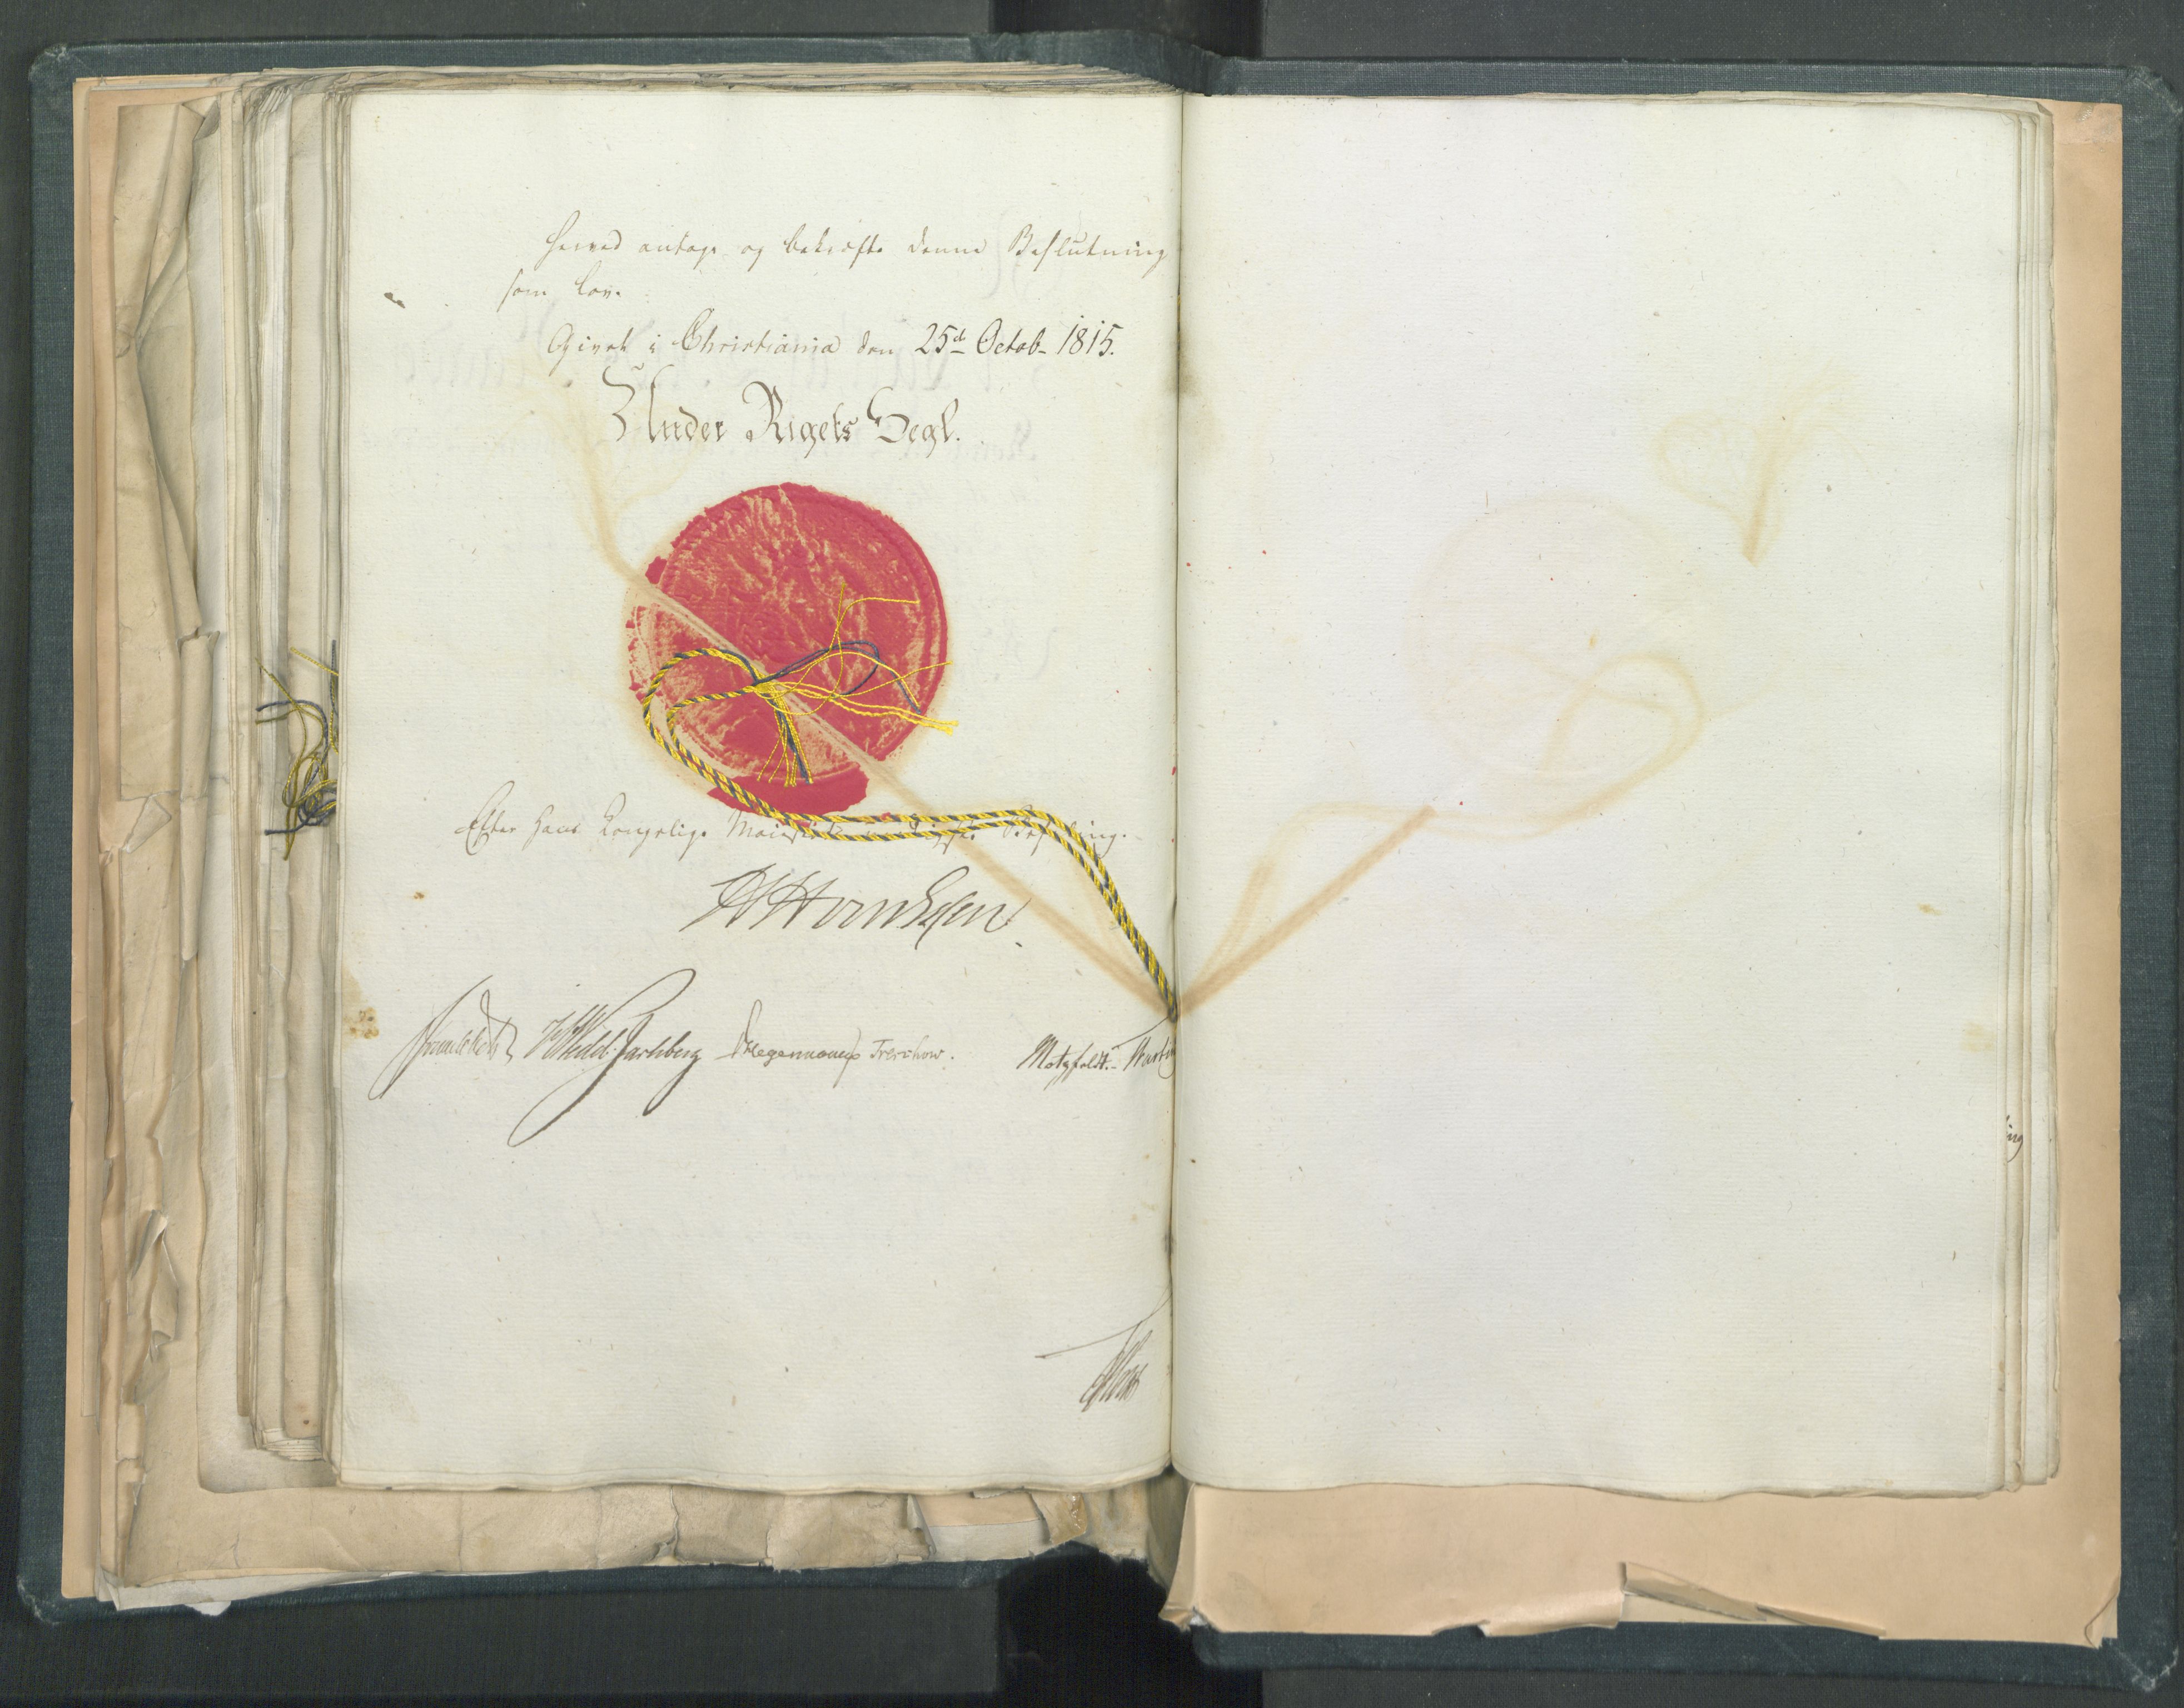 herved antage og bekræfte denne Beslutning
som Lov.
Givet i Christiania den 25d Octob. 1815.
Under Rigets Segl.
Efter Hans Kongelige Majestæts Befaling.
Wedel Jarlsberg Hegermann Treschow. Motzfeldt.